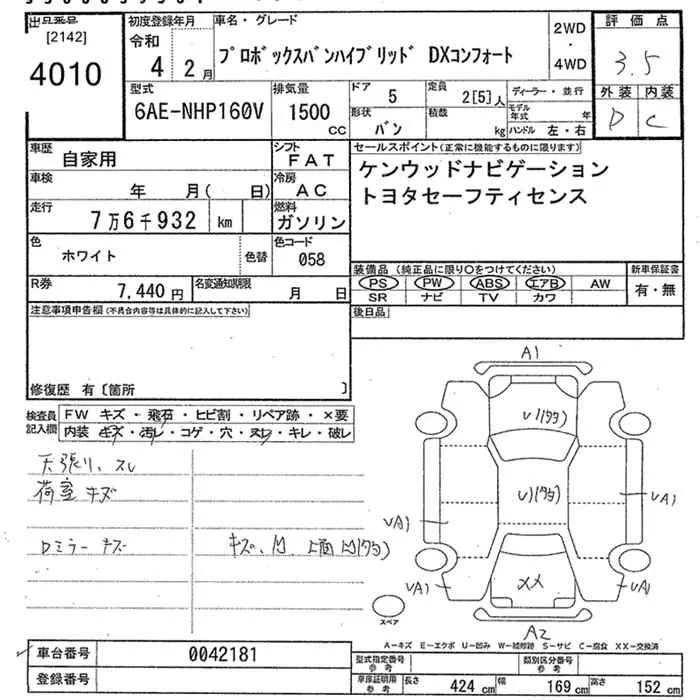 出品番号 初度登録年月 車名・グレード 2WD・4WD 評価点
[2142] 令和
4010 4 2月 プロボックスバンハイブリッド DXコンフォート 3.5
型式 排気量 ドア 5 定員 2[5]人 ディーラー・並行 外装 内装
6AE-NHP160V 1500 CC 形状 バン 積載 kg モデル年式 年 ハンドル 左・右 D C
車歴 自家用 シフト FAT セールスポイント(正常に機能するものに限ります)
車検 年 月( 日) 冷房 AC ケンウッドナビゲーション
走行 7万6千932 km 燃料 ガソリン トヨタセーフティセンス
色 ホワイト 色替 色コード 058
装備品 (純正品に限り○をつけてください) 新車保証書
PS PW ABS エアB AW 有・無
SR ナビ TV カワ
R券 7,440円 名変通知期限 月 日
注意事項申告欄(不具合内容等は具体的に記入して下さい) 後日品
修復歴 有〔箇所 〕
検査員記入欄 FW キズ・飛石・ヒビ割・リペア跡・×要
内装 キズ・汚レ・コゲ・穴・ヌレ・キレ・破レ
天張り、スレ
荷室 キズ
Dミラー キズ
A1
U1(タタ)
U1(タタ)
UA1
UA1
UA1
UA1
XX
A2
スペア
A-キズ E-エクボ U-凹み W-補修跡 S-サビ C-腐食 XX-交換済
車台番号 0042181
登録番号
型式指定番号 参考 類別区分番号 参考
車庫証明用 参考 長さ 424 cm 幅 169 cm 高さ 152 cm